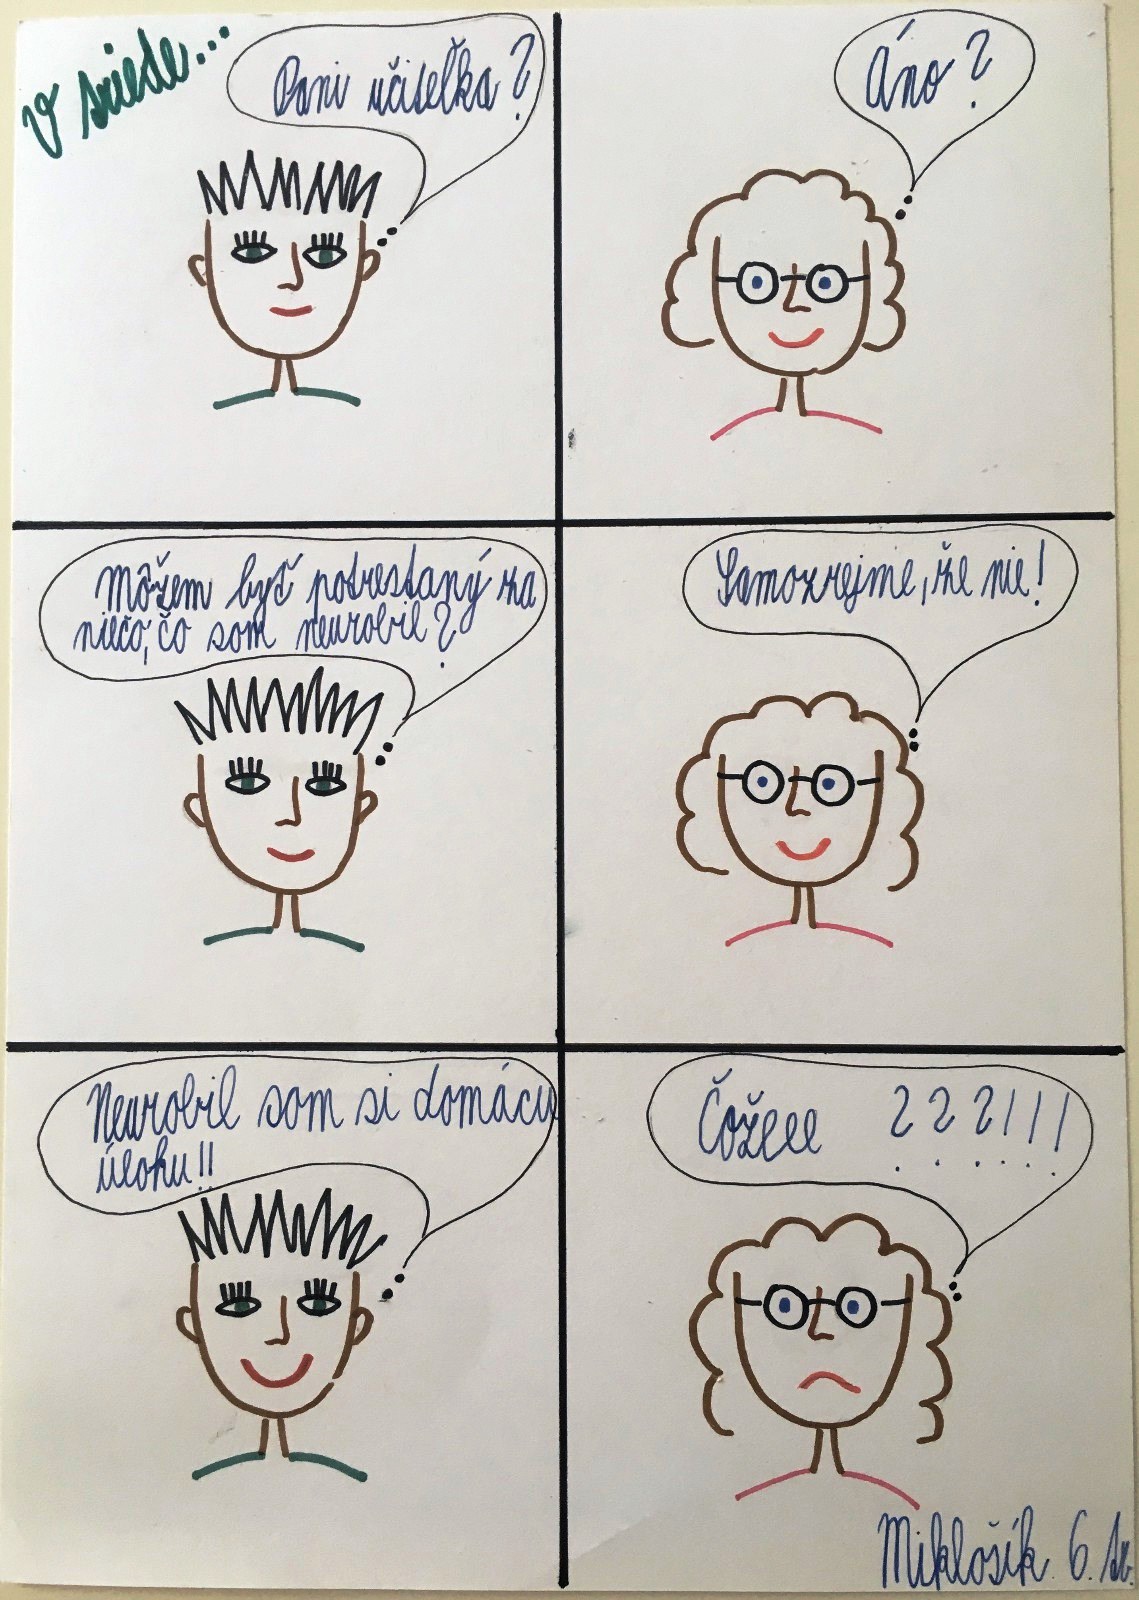 V triede...
Pani učiteľka?
Áno?
Môžem byť potrestaný za
niečo, čo som neurobil?
Samozrejme, že nie!
Neurobil som si domácu
úlohu!!
Čožeee ???!!!
Miklošík 6. tr.